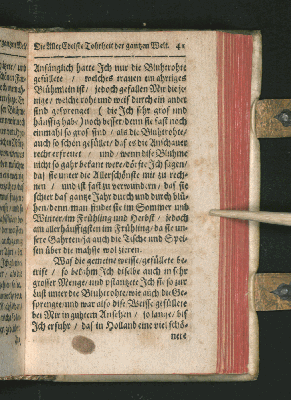 Die Aller Edelste Tohrheit der gantzen Welt. 41
Anfänglich hatte Ich nur die Bluhtrohte
gefüllete / welches trauen ein ahrtiges
Blühmlein ist / jedoch gefallen Mir diejenige /
welche rohte und weiß durch ein ander
sind gesprenget ( die Ich sehr groß und
häuffig habe ) noch besser / denn sie fast noch
einmahl so groß sind / als die Bluhtrohte /
auch so schön gefüllet / daß es die Anschauer
recht erfreuet / und / wenn diese Bluhme
nicht so gahr bekant were / dörfte Ich sagen /
daß sie unter die Allerschönste mit zu rechnen /
und ist fast zu verwundern / daß sie
schier das gantze Jahr durch und durch blühen /
denn man findet sie im Sommer und
Winter / im Frühling und Herbst / jedoch
am allerhäuffigsten im Frühling / da sie unsere
Gahrten / ja auch die Tische und Speisen
über die mahsse wol zieren.
Was die gemeine weisse / gefüllete betrift /
so hat ihm Ich dieselbe auch in sehr
grosser Menge / und pflantzete Ich sie / so zur
Lust unter die Bluhtrohte / wie auch die Gesprengte
und war also diese Weisse gefüllete
bei Mir in guhtem Ansehen / so lange / biß
Ich erfuhr / daß in Holland eine viel schö-
nere